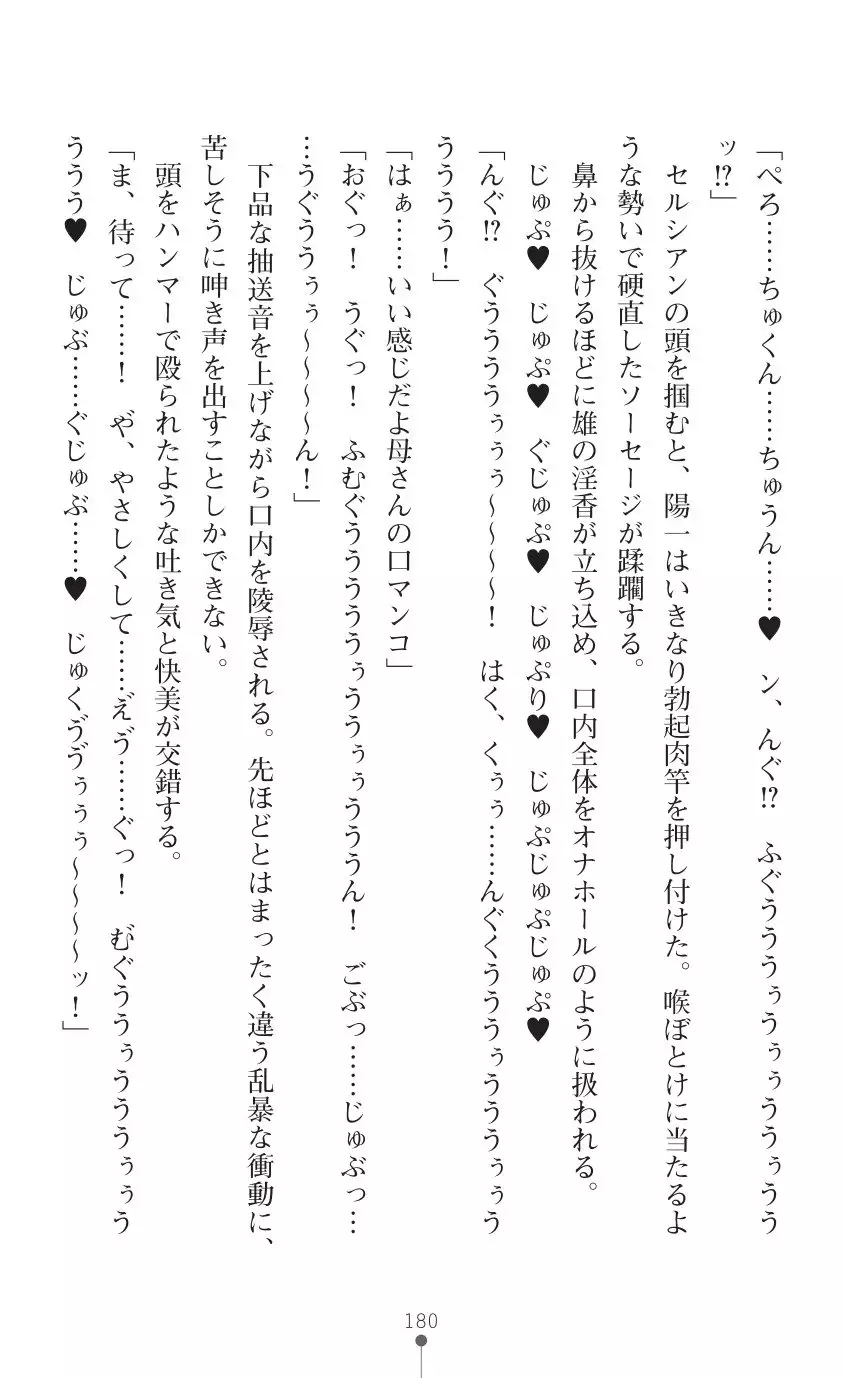 「ぺろ……ちゅくん……ちゅうん……♥　ン、んぐ!?　ふぐうううぅうぅぅううぅうう
ッ!?」
　セルシアンの頭を掴むと、陽一はいきなり勃起肉竿を押し付けた。喉ぼとけに当たるよ
うな勢いで硬直したソーセージが蹂躙する。
　鼻から抜けるほどに雄の淫香が立ち込め、口内全体をオナホールのように扱われる。
　じゅぷ♥　じゅぷ♥　ぐじゅぷ♥　じゅぷり♥　じゅぷじゅぷじゅぷ♥
「んぐ!?　ぐううううぅぅぅ～～～～！　はく、くぅぅ……んぐくうううぅうううぅぅう
うううう！」
「はぁ……いい感じだよ母さんの口マンコ」
「おぐっ！　うぐっ！　ふむぐうううううぅううぅぅうううん！　ごぶっ……じゅぶっ…
…うぐううぅぅ～～～～ん！」
　下品な抽送音を上げながら口内を陵辱される。先ほどとはまったく違う乱暴な衝動に、
苦しそうに呻き声を出すことしかできない。
　頭をハンマーで殴られたような吐き気と快美が交錯する。
「ま、待って……！　や゛、やさしくして……え゛ゔ……ぐっ！　む゛ぐううぅうううぅぅう
ううう♥　じゅぶ……ぐじゅぶ……♥　じゅくゔゔぅぅぅ～～～～ッ！」
180